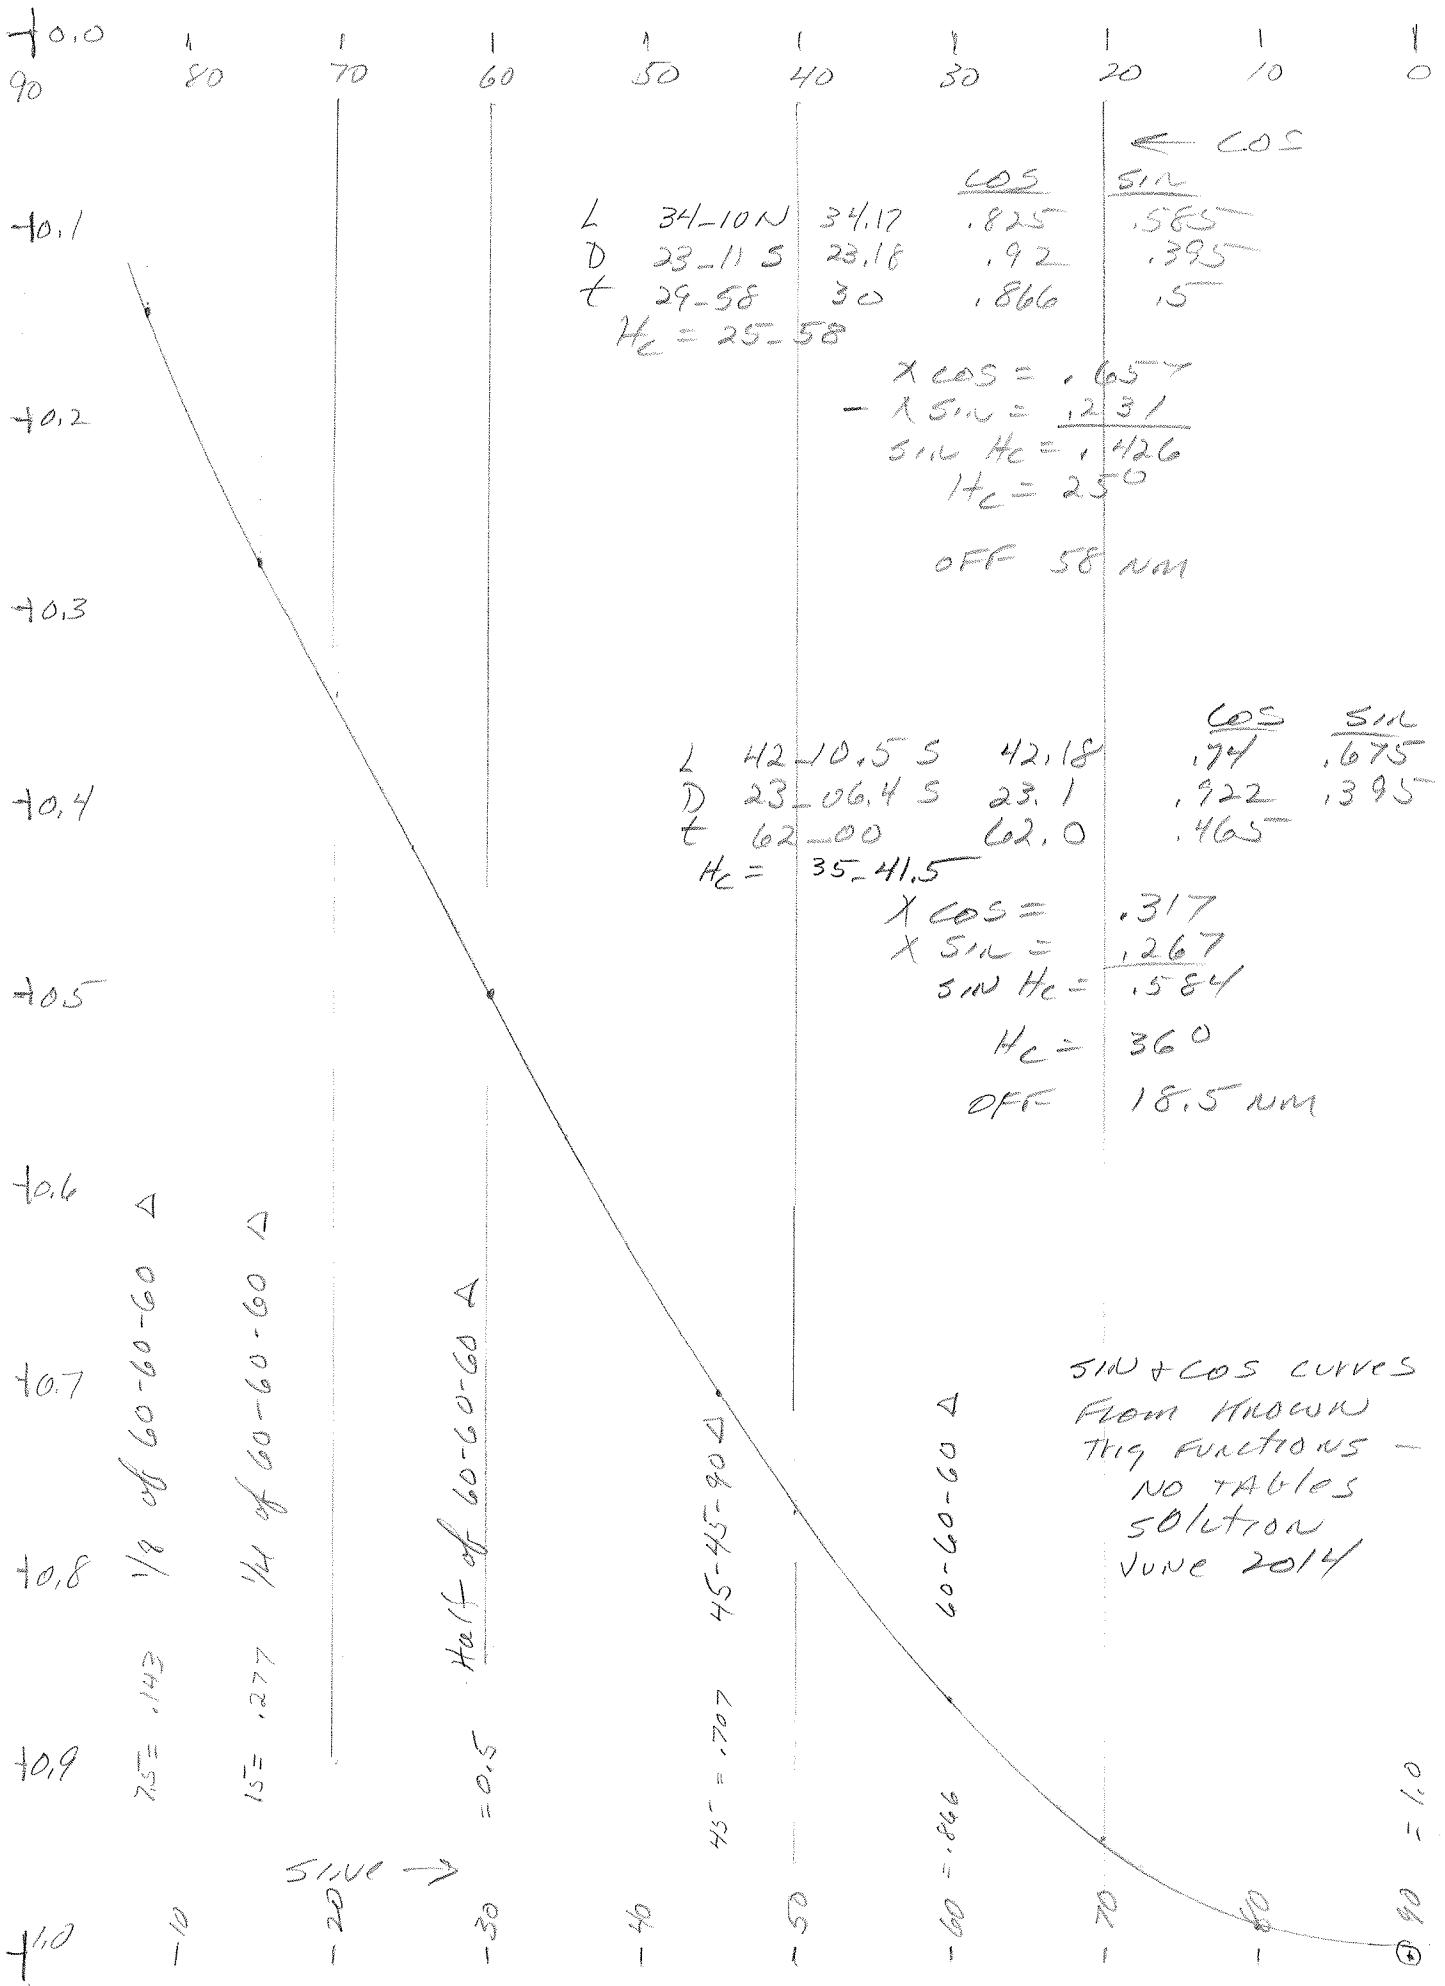 0.0
90 80 70 60 50 40 30 20 10 0
← COS
COS SIN
L 34-10N 34.17 .825 .585
D 23-11 S 23.18 .92 .395
t 29-58 30 .866 .5
Hc = 25-58
X COS = .657
- X SIN = .231
SIN Hc = .426
Hc = 25°
OFF 58 NM
0.1
0.2
0.3
COS SIN
L 42-10.5 S 42.18 .74 .675
D 23-06.4 S 23.1 .922 .395
t 62-00 62.0 .465
Hc = 35-41.5
X COS = .317
X SIN = .267
SIN Hc = .584
Hc = 36°
OFF 18.5 NM
0.4
0.5
0.6
0.7
0.8
0.9
1.0
SIN + COS CURVES
FROM KNOWN
TRIG FUNCTIONS —
NO TABLES
SOLUTION
JUNE 2014
7.5 = .143 1/8 of 60-60-60 Δ
15 = .277 1/4 of 60-60-60 Δ
= 0.5 Half of 60-60-60 Δ
45 = .707 45-45-90 Δ
= .866 60-60-60 Δ
= 1.0
SINE →
10 20 30 40 50 60 70 80 90